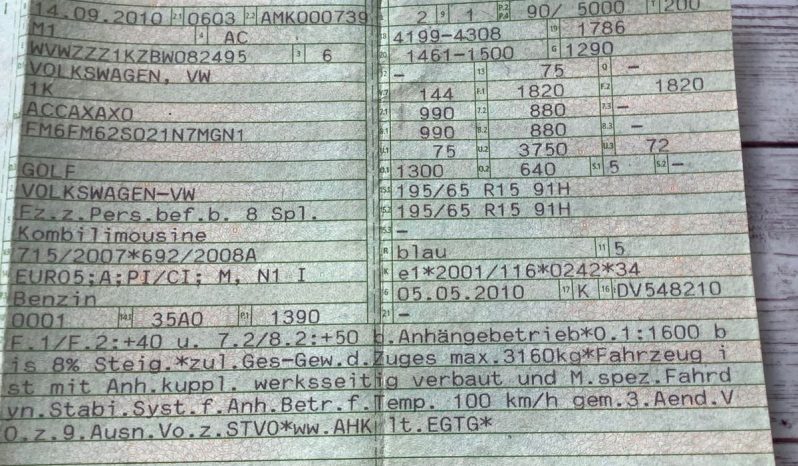 14.09.2010 2.1 0603 2.2 AMK000739
M1 4 AC
WVWZZZ1KZBW082495 3 6
VOLKSWAGEN, VW
1K
ACCAXAX0
FM6FM62S021N7MGN1
GOLF
VOLKSWAGEN-VW
Fz.z.Pers.bef.b. 8 Spl.
Kombilimousine
715/2007*692/2008A
EURO5;A;PI/CI; M, N1 I
Benzin
0001 35A0 P.1 1390
2 9 1 P.2 P.4 90/ 5000 T 200
18 4199-4308 19 1786
20 1461-1500 G 1290
12 - 13 75 Q -
144 F.1 1820 F.2 1820
990 7.2 880 7.3 -
990 8.2 880 8.3 -
75 U.2 3750 U.3 72
1300 O.2 640 S.1 5 S.2 -
195/65 R15 91H
195/65 R15 91H
-
R blau 11 5
K e1*2001/116*0242*34
6 05.05.2010 17 K 16 DV548210
21 -
F.1/F.2:+40 u. 7.2/8.2:+50 b.Anhängebetrieb*0.1:1600 b
is 8% Steig.*zul.Ges-Gew.d.Zuges max.3160kg*Fahrzeug i
st mit Anh.kuppl. werksseitig verbaut und M.spez.Fahrd
yn.Stabi.Syst.f.Anh.Betr.f.Temp. 100 km/h gem.3.Aend.V
O.z.9.Ausn.Vo.z.STVO*ww.AHK lt.EGTG*